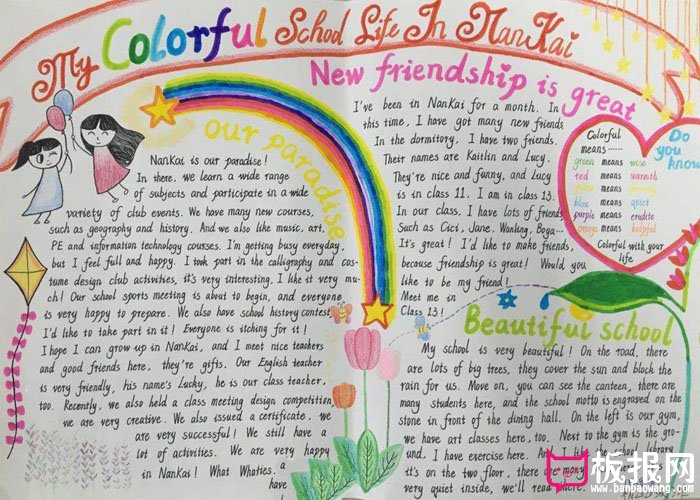 My Colorful School Life In NanKai
our paradise
NanKai is our paradise!
In there, we learn a wide range
of subjects and participate in a wide
variety of club events. We have many new courses,
such as geography and history. And we also like music, art,
PE and information technology courses. I'm getting busy everyday,
but I feel full and happy. I took part in the calligraphy and cos-
tume design club activities, it's very interesting, I like it very mu-
ch! Our school sports meeting is about to begin, and everyone
is very happy to prepare. We also have school history contest
I'd like to take part in it! Everyone is itching for it!
I hope I can grow up in NanKai, and I meet nice teachers
and good friends here, they're gifts. Our English teacher
is very friendly, his name's Lucky, he is our class teacher,
too. Recently, we also held a class meeting design competition
we are very creative. We also issued a certificate, we
are very successful! We still have a
lot of activities. We are very happy
in NanKai! What Whaties. a
have
New friendship is great
I've been in NanKai for a month. In
this time, I have got many new friends
In the dormitory, I have two friends.
Their names are Kaitlin and Lucy.
They're nice and funny, and Lucy
is in class 11, I am in class 13.
In our class, I have lots of friends
Such as Cici, Jane, Wanling, Boga...
It's great! I'd like to make friends,
because friendship is great! Would you
like to be my friend!
Meet me in
Class 13!
Do you know
Colorful
means ......
green means wise
red means warmth
means
blue means quiet
purple means erudite
orange means helpful
Colorful with your
life
Beautiful school
My school is very beautiful! On the road, there
are lots of big trees, they cover the sun and block the
rain for us. Move on, you can see the canteen, there are
many students here, and the school motto is engraved on the
stone in front of the dining hall. On the left is our gym,
we have art classes here, too. Next to the gym is the gro-
und, I have exercise here. And library
it's on the two floor, there are many
very quiet inside, we'll read there.
板报网
www.banbaowang.com